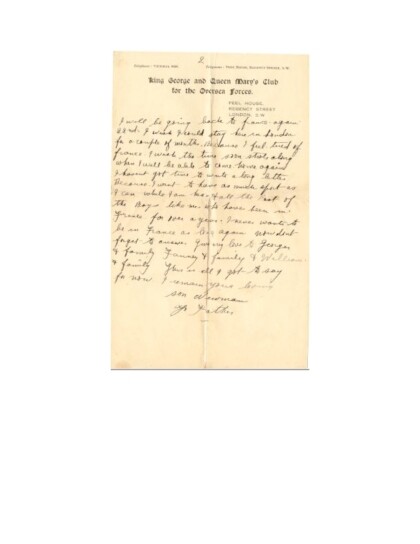 2
King George and Queen Mary's Club
for the Oversea Forces.
PEEL HOUSE,
REGENCY STREET
LONDON, S.W.
I will be going back to france again
23rd. I wish I could stay here in London
for a couple of months because I feel tired of
france. I wish the time soon
when I will be able to come home again
I havent got time to write a long letter
Because I want to have as much sport as
I can while I am here & all the rest of
the Boys like
France for over a year. I never wants to
be in France as long again now dont
forget to answer Give my love to Georges
& family & family & William
& family This is all I got to say
for now I remain your loving
son Newman
To Father